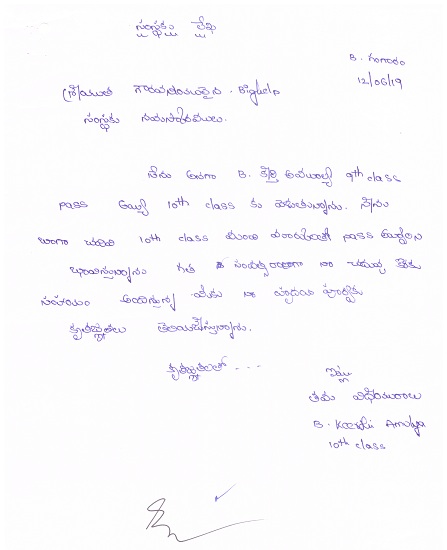 సంస్థకు లేఖ
B. గంగారం
12/06/19
గౌరవనీయులైన . Bighelp
సంస్థకు నమస్కారములు.
నేను అనగా B. కీర్తి అమూల్య 9th class
pass అయ్యి 10th class కు వెళుతున్నాను. నేను
బాగా చదివి 10th class మంచి మార్కులతో pass అవ్వాలని
భావిస్తున్నాను గత సంవత్సరంగా నా చదువు కొరకు
సహాయం అందిస్తున్న మీకు నా హృదయ పూర్వక
కృతజ్ఞతలు తెలియచేస్తున్నాను.
కృతజ్ఞతలతో - - -
ఇట్లు
తమ విధేయురాలు
B. Keerthi Amulya
10th class